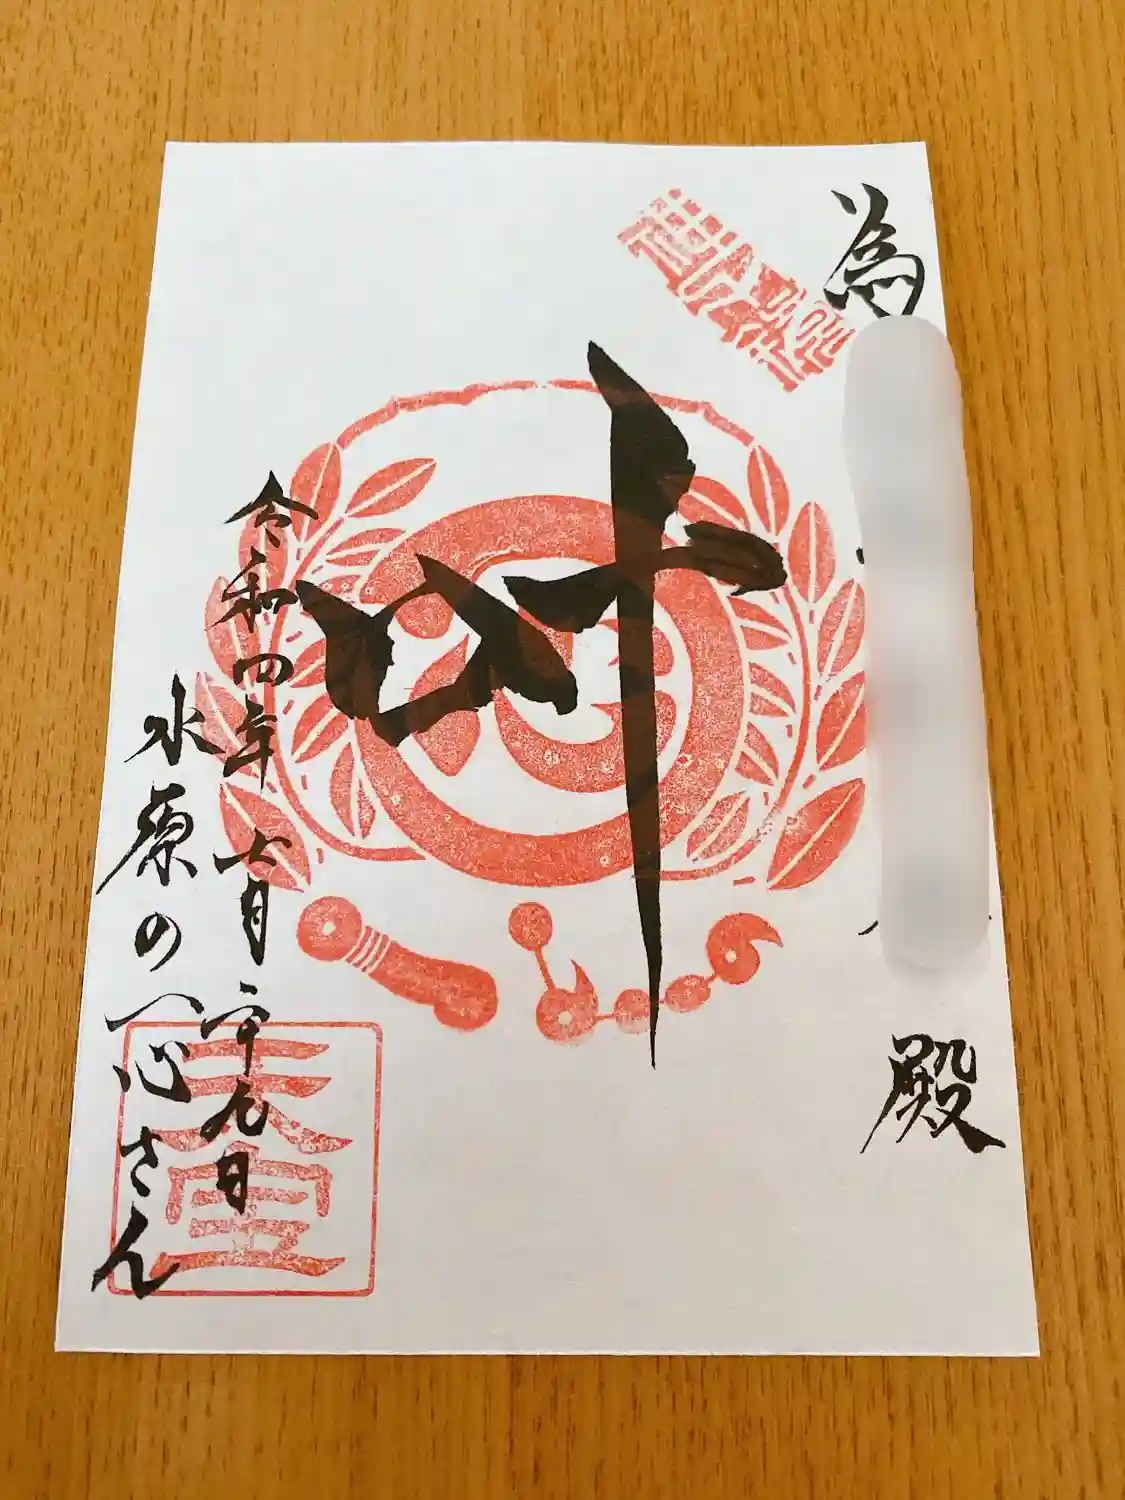 為
殿
叶
令和四年七月二十九日
水原の一心さん
天宝